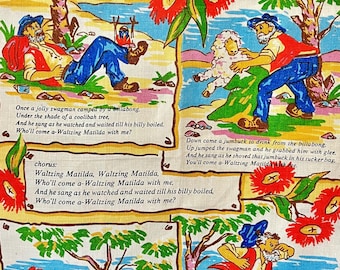 Once a jolly swagman camped by a billabong,
Under the shade of a coolibah tree,
And he sang as he watched and waited till his billy boiled,
Who'll come a-Waltzing Matilda with me?
Down came a jumbuck to drink from the billabong,
Up jumped the swagman and he grabbed him with glee,
And he sang as he shoved that jumbuck in his tucker bag,
You'll come a-Waltzing Matilda with me.
chorus:
Waltzing Matilda, Waltzing Matilda,
Who'll come a-Waltzing Matilda with me,
And he sang as he watched and waited till his billy boiled,
Who'll come a-Waltzing Matilda with me?